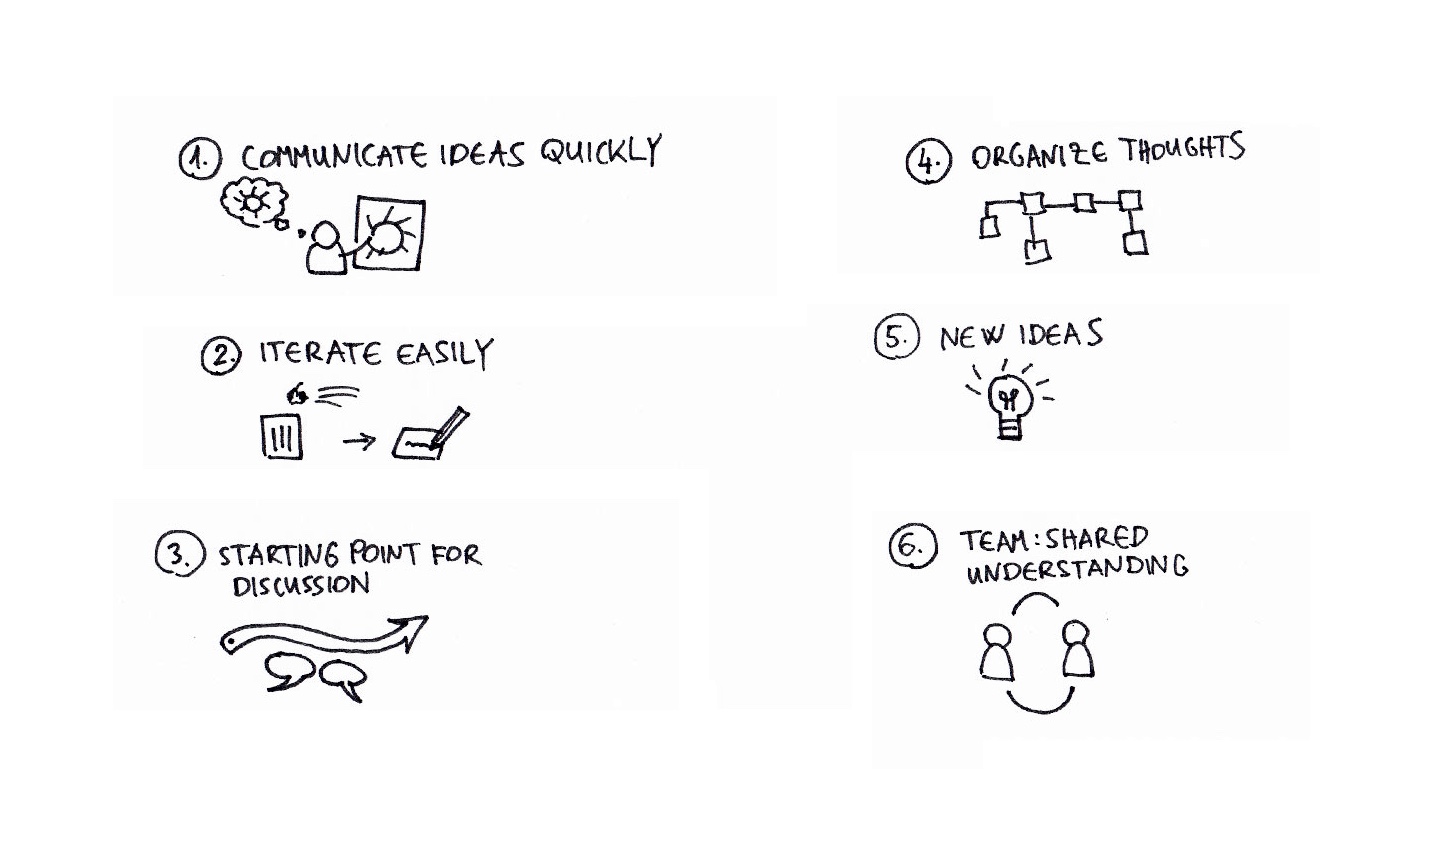 1. COMMUNICATE IDEAS QUICKLY
2. ITERATE EASILY
3. STARTING POINT FOR
DISCUSSION
4. ORGANIZE THOUGHTS
5. NEW IDEAS
6. TEAM: SHARED
UNDERSTANDING